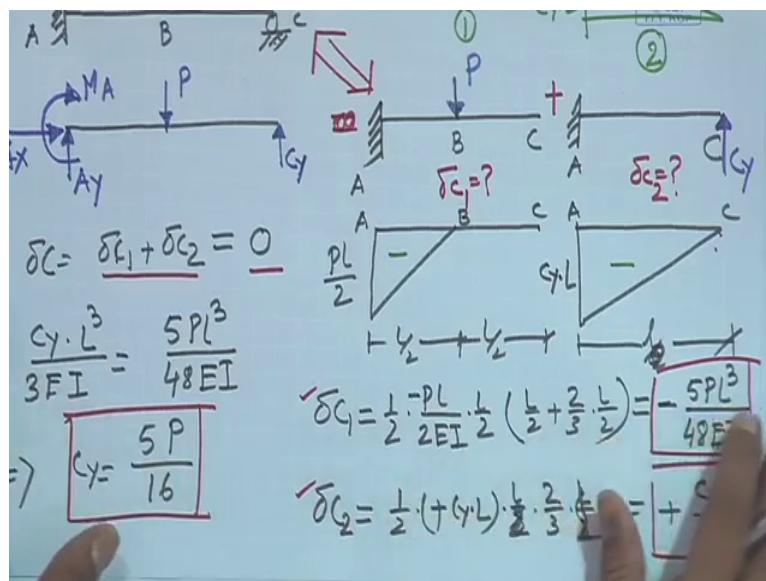 A B C
① ②
MA P
Ay Cy
P +
A B C A C Cy
δc₁=? δc₂=?
A B C A C
PL/2 - Cy·L -
L/2 L/2 L
δC= δC₁+δC₂= 0
Cy·L³/3EI = 5PL³/48EI
=> Cy= 5P/16
✓δC₁= 1/2·-PL/2EI·L/2 (L/2+2/3·L/2)= -5PL³/48EI
✓δC₂= 1/2·(+Cy·L)·L/2·2/3·L/2 = +